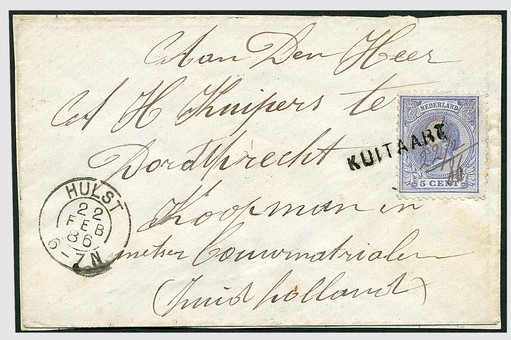 Aan Den Heer
H Kuipers te
Dordtrecht
Koopman in
Bouwmatrialen
(Zuid holland)
NEDERLAND
5 CENT
KUITAART
22/2
HULST
22
FEB
86
6-7N